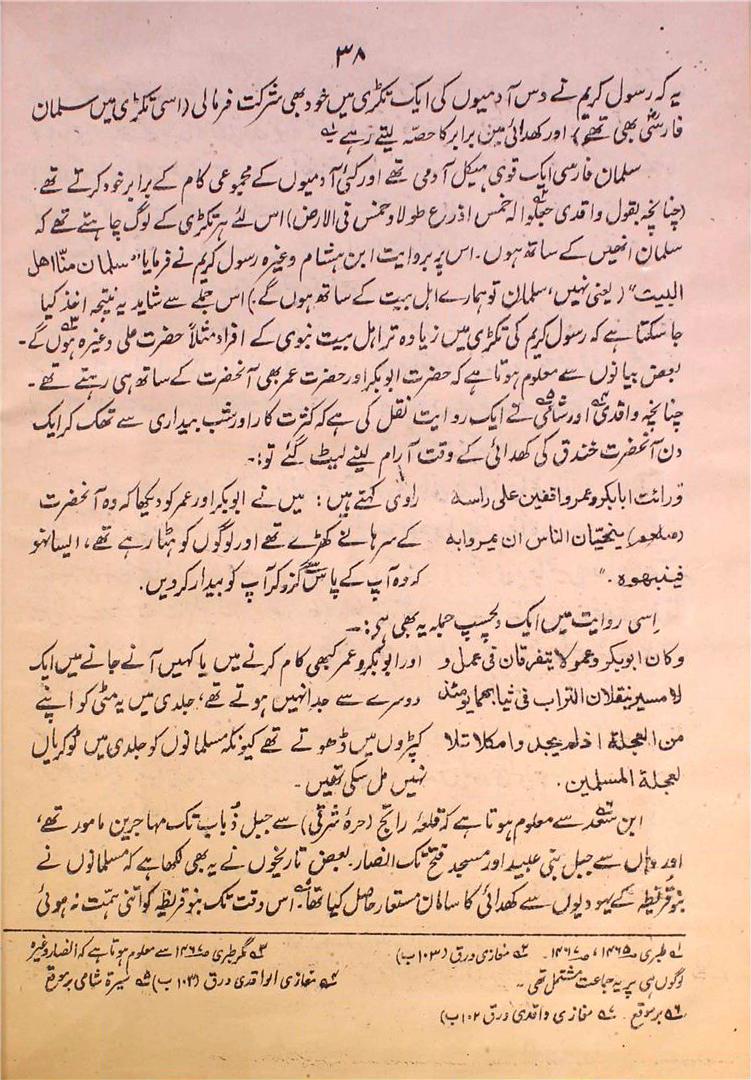 ۳۸
یہ کہ رسول کریم نے دس آدمیوں کی ایک ٹکڑی میں خود بھی شرکت فرمالی (اسی ٹکڑی میں سلمان
فارسی بھی تھے) اور کھدائی میں برابر کا حصّہ لیتے رہے ؂۱
سلمان فارسی ایک قوی ہیکل آدمی تھے اور کئی آدمیوں کے مجموعی کام کے برابر خود کرتے تھے
(چنانچہ بقول واقدی جعلوا له خمس اذرع طولا وخمس فی الارض) اس لئے ہر ٹکڑی کے لوگ چاہتے تھے کہ
سلمان انھیں کے ساتھ ہوں۔ اس پر بروایت ابن ہشام وغیرہ رسول کریم نے فرمایا "سلمان منّا اهل
البیت" (یعنی نہیں، سلمان تو ہمارے اہل بیت کے ساتھ ہوں گے۔) اس جملے سے شاید یہ نتیجہ اخذ کیا
جا سکتا ہے کہ رسول کریم کی ٹکڑی میں زیادہ تر اہل بیت نبوی کے افراد مثلاً حضرت علی وغیرہ ہوں گے۔
بعض بیانوں سے معلوم ہوتا ہے کہ حضرت ابوبکر اور حضرت عمر بھی آنحضرت کے ساتھ ہی رہتے تھے۔
چنانچہ واقدی ؂۴ اور شامی ؂۵ نے ایک روایت نقل کی ہے کہ کثرت کار اور شب بیداری سے تھک کر ایک
دن آنحضرت خندق کی کھدائی کے وقت آرام لینے لیٹ گئے تو:۔
ورائت ابابکر وعمر واقفین علی راسه راوی کہتے ہیں: میں نے ابوبکر اور عمر کو دیکھا کہ وہ آنحضرت
(صلعم) ینحیّان الناس ان یمروا به کے سرہانے کھڑے تھے اور لوگوں کو ہٹا رہے تھے، ایسا نہو
فینبهوه۔" کہ وہ آپ کے پاس سے گزر کر آپ کو بیدار کر دیں۔
اِسی روایت میں ایک دلچسپ جملہ یہ بھی ہے:۔
وکان ابوبکر وعمر لا یتفرقان فی عمل و اور ابوبکر و عمر کبھی کام کرنے میں یا کہیں آنے جانے میں ایک
لا مسیر ینقلان التراب فی ثیابهما یومئذ دوسرے سے جدا نہیں ہوتے تھے، جلدی میں یہ مٹی کو اپنے
من العجلة اذ لم یجدوا مکاتلا کپڑوں میں ڈھوتے تھے کیونکہ مسلمانوں کو جلدی میں ٹوکریاں
لعجلة المسلمین۔ نہیں مل سکی تھیں۔
ابن سعد ؂۶ سے معلوم ہوتا ہے کہ قلعہ راتج (حرۂ شرقی) سے جبل ذباب تک مہاجرین مامور تھے،
اور وہاں سے جبل بنی عبید اور مسجد فتح تک انصار۔ بعض تاریخوں نے یہ بھی لکھا ہے کہ مسلمانوں نے
بنو قریظہ کے یہودیوں سے کھدائی کا سامان مستعار حاصل کیا تھا۔ اس وقت تک بنو قریظہ کو اتنی ہمت نہ ہوئی
؂۱ طبری ص۱۴۶۵، ص۱۴۶۷۔ ؂۲ مغازی ورق (۱۰۳ ب) ؂۳ مگر طبری ص۱۴۶۷ سے معلوم ہوتا ہے کہ انصار وغیرہ
لوگوں ہی پر یہ جماعت مشتمل تھی۔ ؂۴ مغازی الواقدی ورق (۱۰۳ ب) ؂۵ سیرۃ شامی برموقع
؂۶ برموقع۔ ؂۷ مغازی واقدی ورق ۱۰۲ ب)